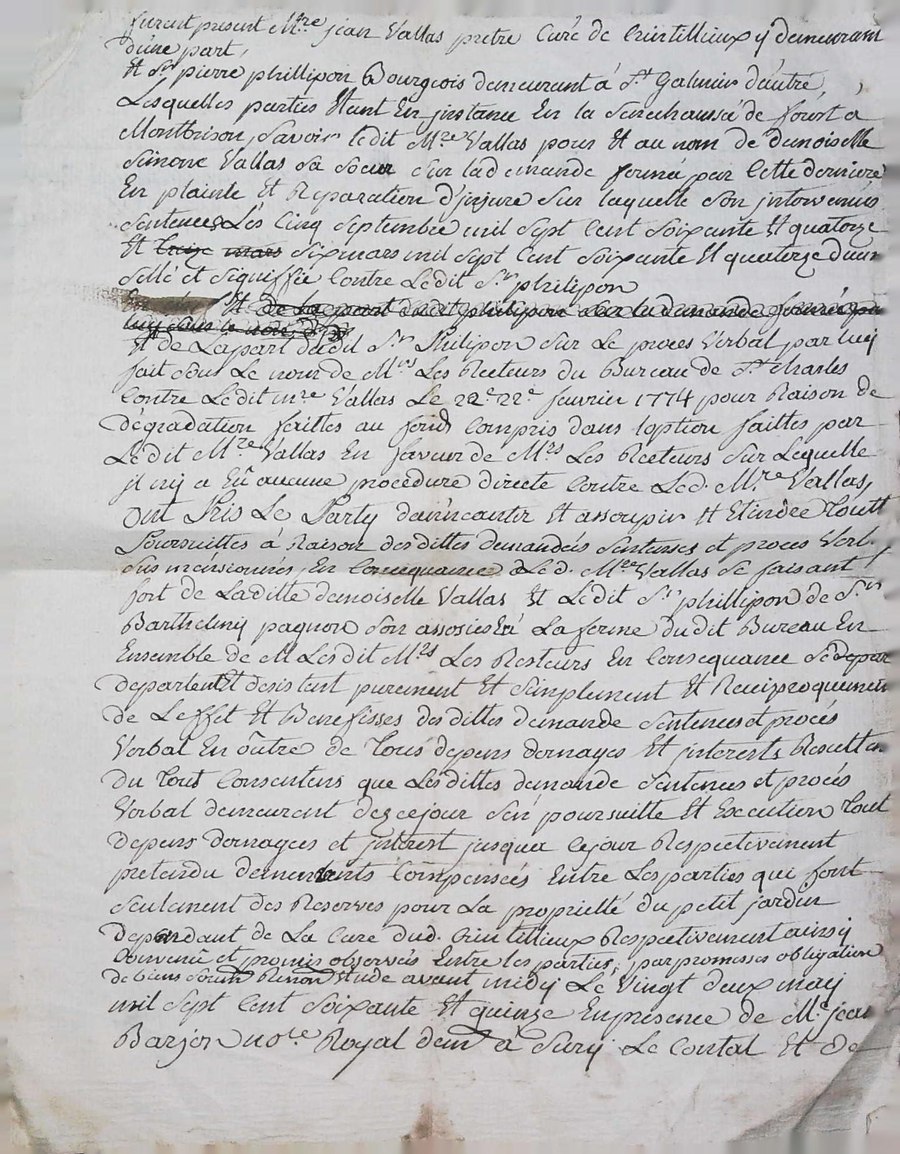 furent present M.re jean Vallas prêtre Curé de Crintillieux y demeurant
d'une part,
Et S.r pierre phillipon Bourgeois demeurant á S.t Galmier d'autre,
Lesquelles parties Etant En jnstance En la Senechaussé de forest a
Montbrison, Savoir ledit M.re Vallas pour Et au nom de demoiselle
Simone Vallas Sa Soeur Sur lademande formée par Cette derniere
En plainte Et Reparation d'jnjure Sur laquelle Son jntervenües
Sentences Les Cinq Septembre mil Sept Cent Soixante Et quatorze
Et treize mars Six mars mil Sept Cent Soixante Et quatorze duem
Sellé et Signiffiée Contre Ledit S.r philipon
Et de La part dudit philipon Sur la demande formée par
luy sous le nom de
Et de Lapart dudit S.r Philipon Sur Le procés Verbal par luy
fait Sous Le nom de M.rs Les Recteurs du Bureau de S.t Charles
Contre Ledit m.re Vallas Le 22.e 22.e janvrier 1774 pour Raison de
dégradation faittes au fond Compris dans loption faittes par
Le dit M.re Vallas En faveur de M.rs Les Recteurs Sur Lequelle
jl ny a Eû aucune procédure directe Contre Led. M.re Vallas,
Ont Pris Le Party d'aneantir Et assoupir Et Eteindre Toutt
Poursuittes á Raison desdittes demandes Sentenses et procés Verb.
Sus mensionnés, En Consequance Led. M.re Vallas Se faisant
fort de Laditte demoiselle Vallas Et Ledit S.r phillipon de S.r
Barthelmy pagnon Son assosié á La ferme dudit Bureau En
Ensemble de M Lesdit M.rs Les Resteurs En Consequance Sedepar
departent Et desistent purement Et Simplement Et Reciproquement
de L'effet Et Benefisses desdittes demande Sentences et procés
Verbal En oûtre de Tous depens domages Et jnterests Resultan
du Tout Consentens que Lesdittes demande Sentences et procés
Verbal demeurent des cejour Sen poursuitte Et Execution Tout
depens domages et jnterest jusqua cejour Respectivement
pretendu demeurents Compensées Entre Les parties qui font
Seulement des Reserves pour La proprietté du petit jardin
dependant de La Cure dud. Crintillieux Respectivement ainsy
Convenû et promis observés Entre les parties, par promesses obligation
de biens Soum Renon Etude avant midy Le Vingt deux may
mil Sept Cent Soixante Et quinze En presence de M.e jean
Barjon no.re Royal dem.t á Sury Le Contal Et de